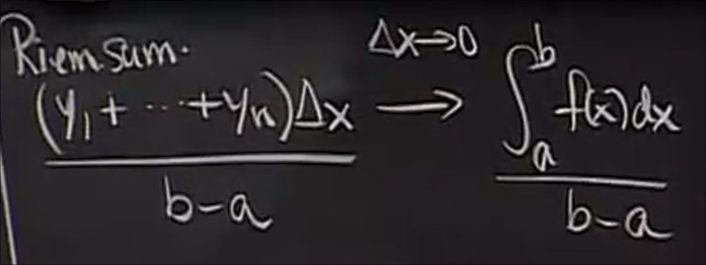 Riem. sum.
(y₁ + ··· + yₙ)Δx / b-a → (Δx→0) ∫ₐᵇ f(x)dx / b-a